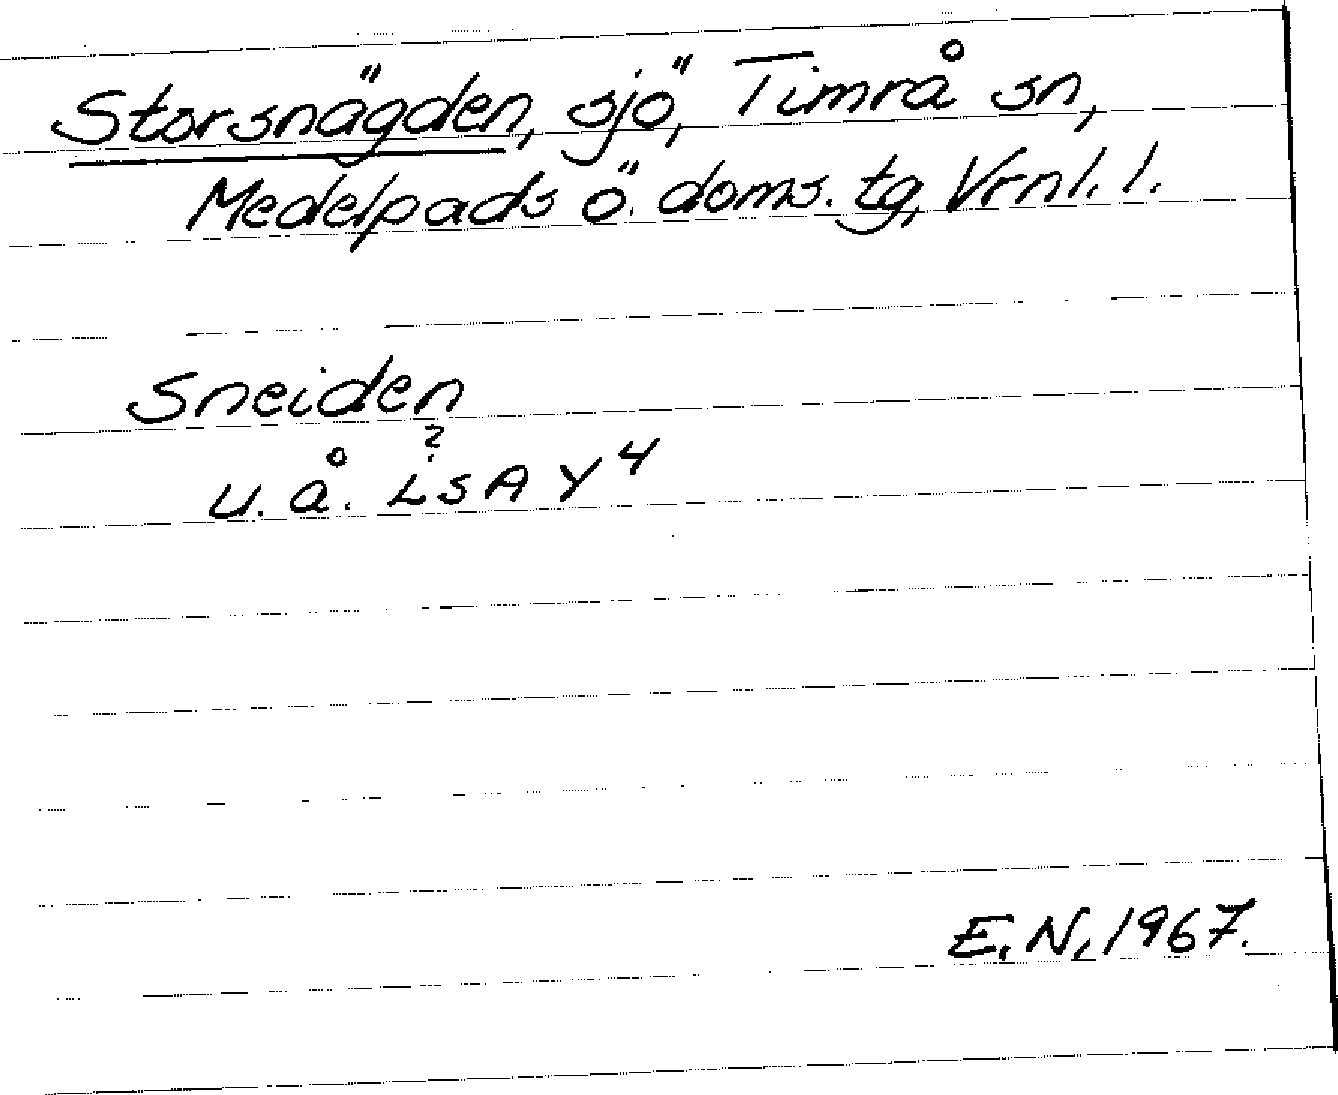 Storsnägden, sjö, Timrå sn,
Medelpads ö. doms. tg, Vrnl. l.
Sneiden
?
u. å. LSA Y 4
E. N. 1967.